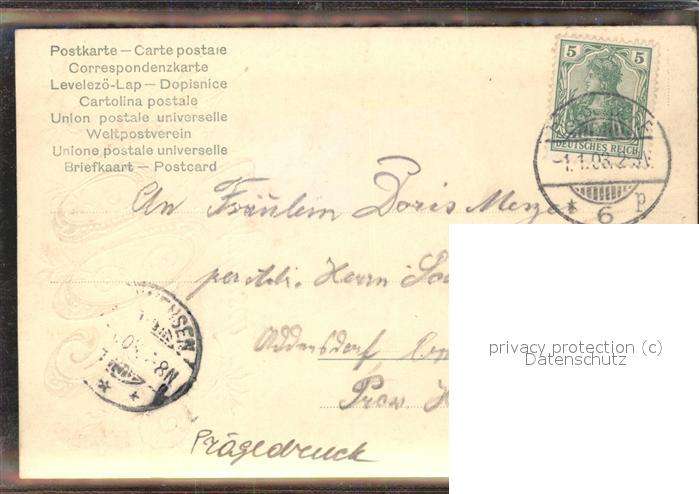 Postkarte — Carte postale
Correspondenzkarte
Levelező-Lap — Dopisnice
Cartolina postale
Union postale universelle
Weltpostverein
Unione postale universelle
Briefkaart — Postcard
5 5
DEUTSCHES REICH
1.1.03.
* 6 P
An Fräulein Doris
Herrn
Prov.
Prägedruck
privacy protection (c)
Datenschutz